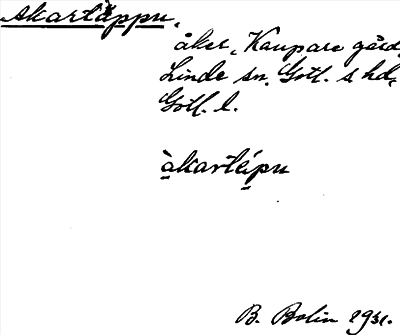 Akartäppu,
åker, Kaupare gård,
Linde sn, Gotl. s hd,
Gotl. l.
àkartäpu
B. Bolin 1931.